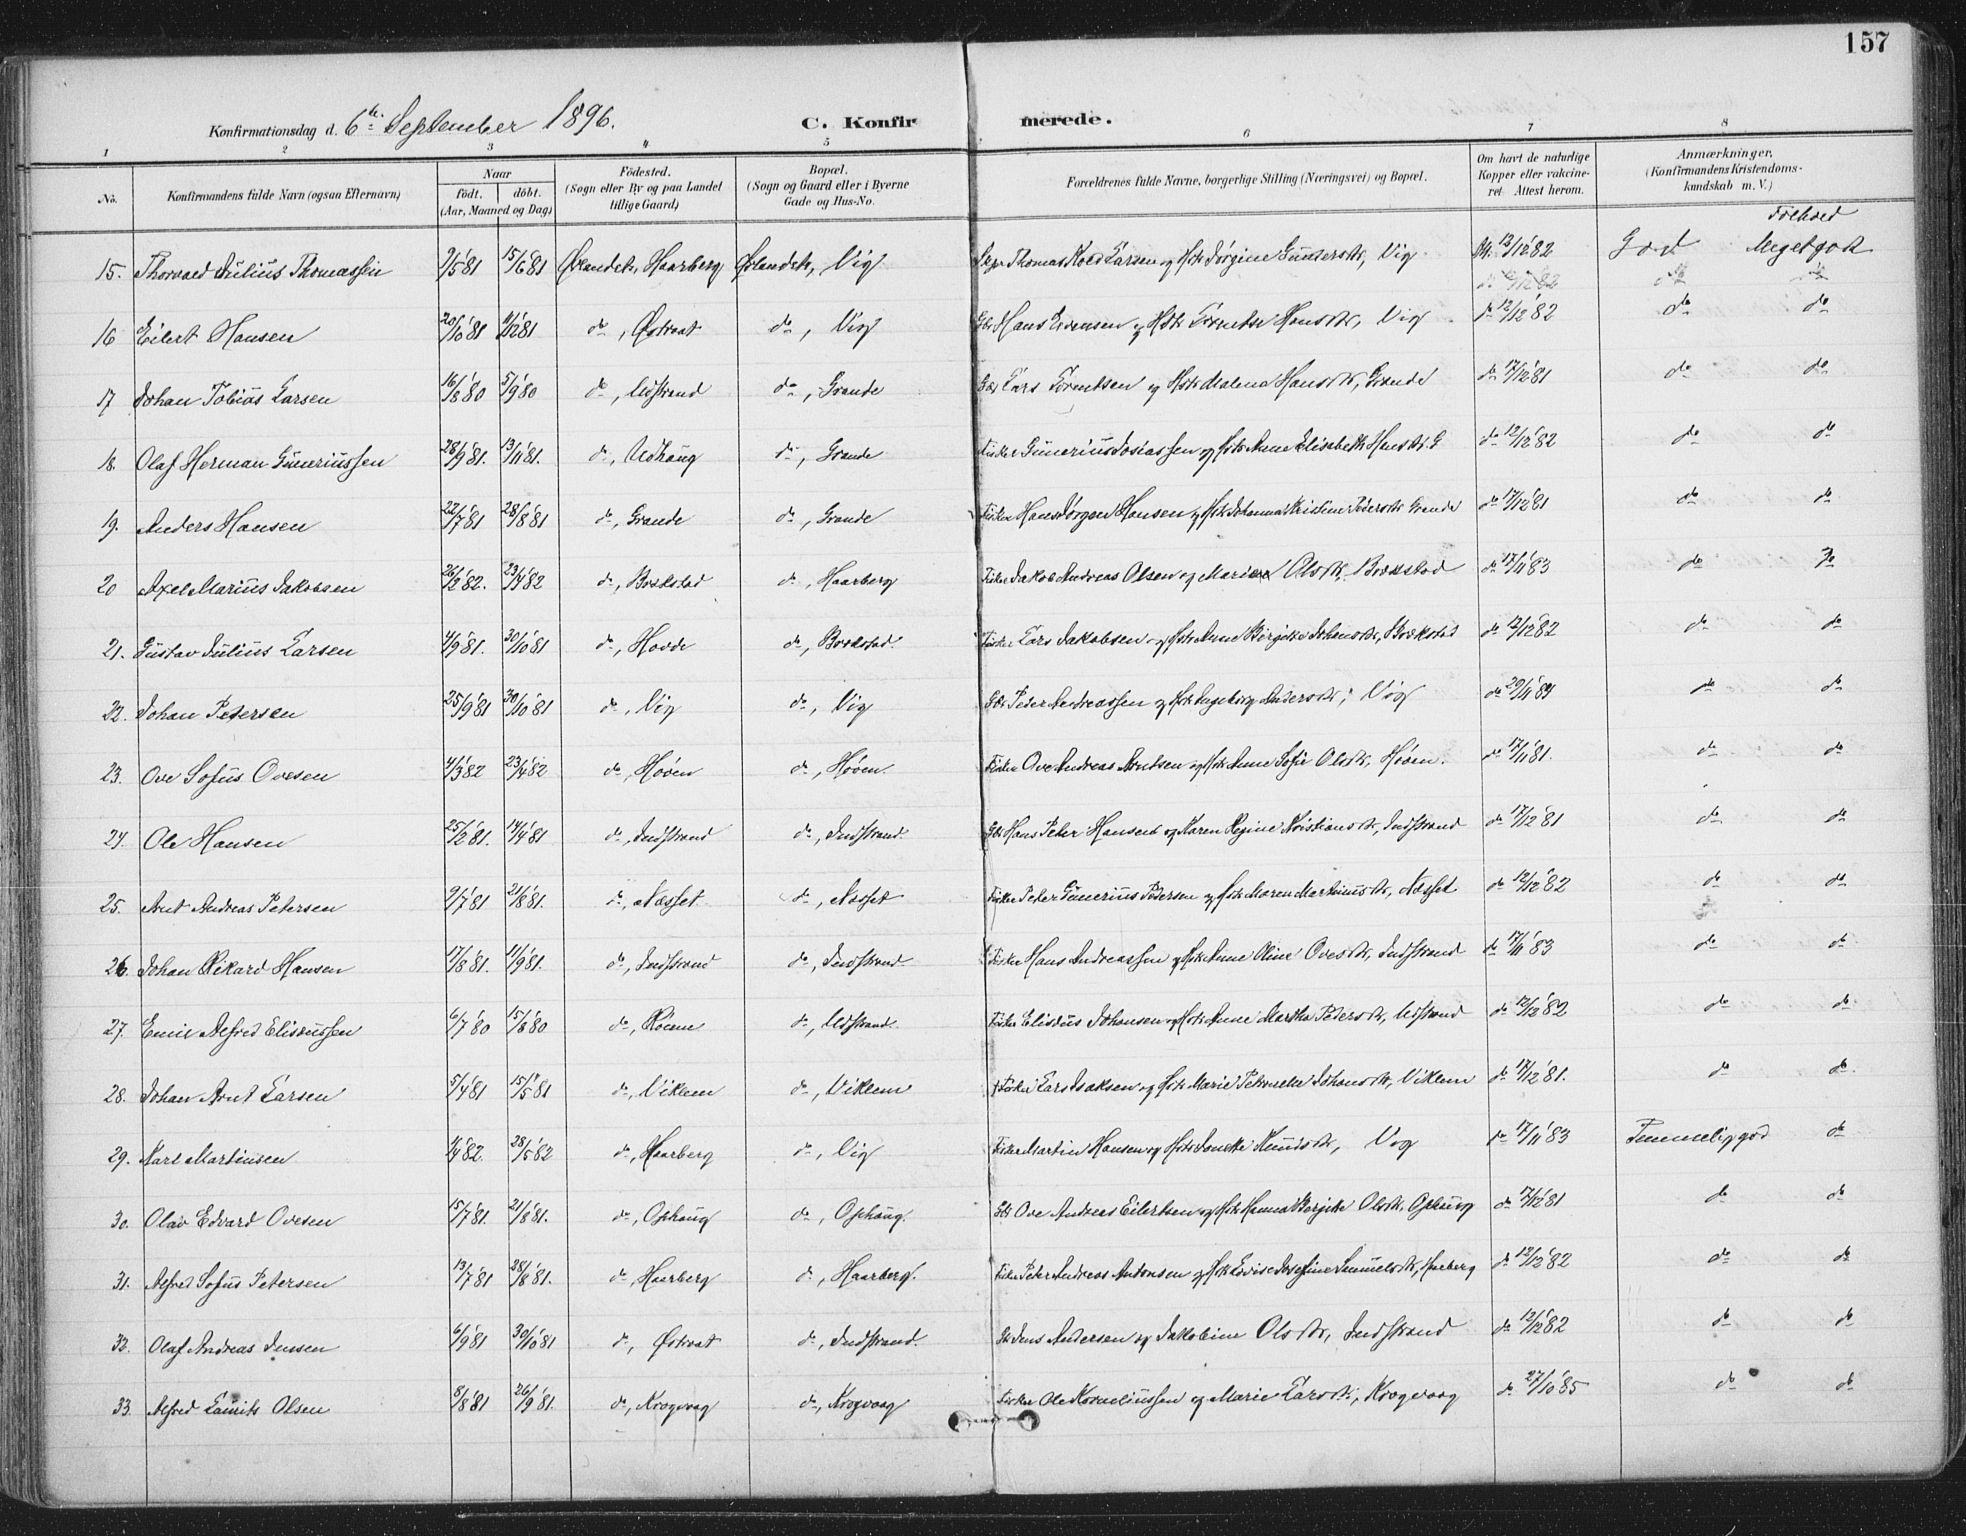 157
Konfirmationsdag d. 6te September 1896. C. Konfirmerede.
1 2 3 4 5 6 7 8
No. Konfirmandens fulde Navn (ogsaa Efternavn) Naar födt. döbt. (Aar, Maaned og Dag) Födested. (Sogn eller By og paa Landet tillige Gaard) Bopæl. (Sogn og Gaard eller i Byerne Gade og Hus-No. Forældrenes fulde Navne, borgerlige Stilling (Næringsvei) og Bopæl. Om havt de naturlige Kopper eller vakcineret. Attest herom. Anmærkninger, (Konfirmandens Kristendomskundskab m. V.)
Forhold
15. Thorvald Julius Thomassen 9/5 81 15/6 81 Ørlandet, Haarberg Ørlandet, Vig Thomas Larsen og Jørgine Gunders Dtr, Vig 12/12 82 God Meget god
16 Eilert Hansen 20/10 81 do, Østraat do, Vig Hans Evensen og Hans Dtr, Vig do 12/12 82 do do
17 Johan Tobias Larsen 16/8 80 5/9 80 do, Udstrand do, Grande Lars Lorentsen og Malena Hans Dtr, Grande do 17/12 81 do do
18. Olaf Herman Guneriussen 28/9 81. 13/11 81. do, Udhaug do, Grande Fisker Gunerius Josiassen og Anne Elisabeth Hans Dtr. G do 12/12 82 do do
19. Anders Hansen 22/7 81 28/8 81 do, Grande do, Grande Fisker Hans Jørgen Hansen og Johanna Kristine Peders Dtr Grande do 17/12 81 do do
20 Axel Marius Jakobsen 26/2 82. 23/4 82 do, Brekstad do, Haarberg Fisker Jakob Andreas Olsen og Ols Dtr, Brekstad do 17/11 83 do do
21. Gustav Julius Larsen 4/9 81. 30/10 81 do, Hovde do, Brekstad. Fisker Lars Jakobsen og Anne Birgitte Johans Dtr, Brekstad do 12/12 82 do do
22. Johan Petersen 25/9 81 30/10 81 do, Vig do, Vig Peter Andreassen og Ingeborg Anders Dtr, Vig do 29/11 84 do do
23. Ove Sofus Ovesen 4/3 82 23/4 82 do, Høven do, Høven. Fisker Ove Andreas Arntsen og Anne Sofie Ols Dtr, Høven. do 17/11 81. do do
24. Ole Hansen 25/2 81. 14/4 81 do, Indstrand do, Indstrand. Hans Peter Hansen og Karen Regine Kristians Dtr, Indstrand do 17/12 81 do do
25. Arnt Andreas Petersen 9/7 81 21/8 81. do, Næsset do, Næsset Fisker Peter Gunerius Petersen og Maren Martinus Dtr, Næsset do 12/12 82 do do
26. Johan Rikard Hansen 17/8 81. 11/9 81. do, Indstrand do, Indstrand. Fisker Hans Andreassen og Anne Oline Oves Dtr, Indstrand do 17/11 83 do do
27. Emil Alfred Eliseussen 6/7 80 15/8 80 do, Røiem do, Udstrand. Fisker Eliseus Johansen og Anne Martha Peters Dtr, Udstrand do 12/12 82 do do
28. Johan Arnt Larsen 5/4 81 15/5 81 do, Viklem do, Viklem Fisker Lars Isaksen og Marie Petronelle Johans Dtr, Viklem do 17/12 81. do do
29. Karl Martinsen 82. 28/5 82 do, Haarberg do, Vig Fisker Martin Hansen og Knuds Dtr, Vig do 17/11 83 Temmelig god do
30. Olav Edvard Ovesen 15/7 81. 21/8 81. do, Ophaug do, Ophaug. Ove Andreas Eilertsen og Hanna Bergitte Ols Dtr, Ophaug do 17/12 81 do do
31. Alfred Sofus Petersen 13/7 81 28/8 81. do, Haarberg do, Haarberg. Fisker Peter Andreas Antonsen og Lovise Josefine Samuels Dtr, Haarberg do 12/12 82 do do
32. Olaf Andreas Jenssen 6/9 81 30/10 81 do, Østraat do, Indstrand. Jens Andersen og Jakobine Ols Dtr, Indstrand do 12/12 82 do do
33. Alfred Laurits Olsen 8/8 81 26/9 81. do, Krogvaag do, Krogvaag Fisker Ole Korneliussen og Marie Lars Dtr, Krogvaag do 27/10 85 do do